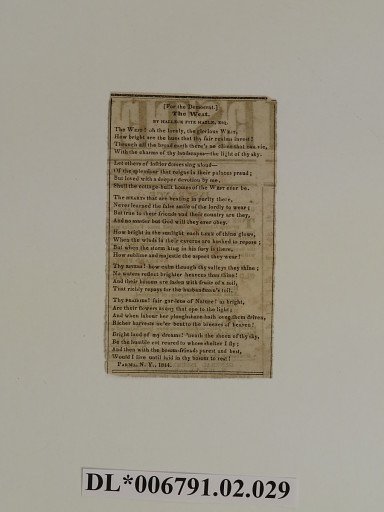 [For the Democrat.]
The West.
BY HALLECK FITZ HAZLE, ESQ.
The WEST! oh the lovely, the glorious WEST,
How bright are the hues that thy fair realms invest!
Through all the broad earth there's no clime that can vie,
With the charms of thy landscapes—the light of thy sky.
Let others of indoor domes sing aloud—
Of the splendour that reigns in their palaces proud;
But loved with a deeper devotion by me,
Shall the cottage-built homes of the WEST ever be.
The HEARTS that are beating in purity there,
Never learned the false smile of the lordly to wear;
But true to their friends and their country are they,
And no master but God will they ever obey.
How bright in the sunlight, each LAKE of thine glows,
When the winds in their caverns are hushed to repose;
But when the storm king in his fury is there,
How sublime and majestic the aspect they wear!
Thy RIVERS! how calm through thy valleys they shine;
No waters reflect brighter heavens than thine!
And their bosoms are laden with fruits of a soil,
That richly repays for the husbandman's toil.
Thy PRAIRIES! fair gardens of Nature! as bright,
Are their flowers as any that ope to the light;
And when labour her ploughshare hath o'er them driven,
Richer harvests ne'er bent to the breezes of heaven!
Bright land of my dreams! 'neath the sheen of thy sky,
Be the humble cot reared to whose shelter I fly;
And then with the bosom-friends purest and best,
Would I live until laid in thy bosom to rest!
PARMA, N. Y., 1844.
DL*006791.02.029